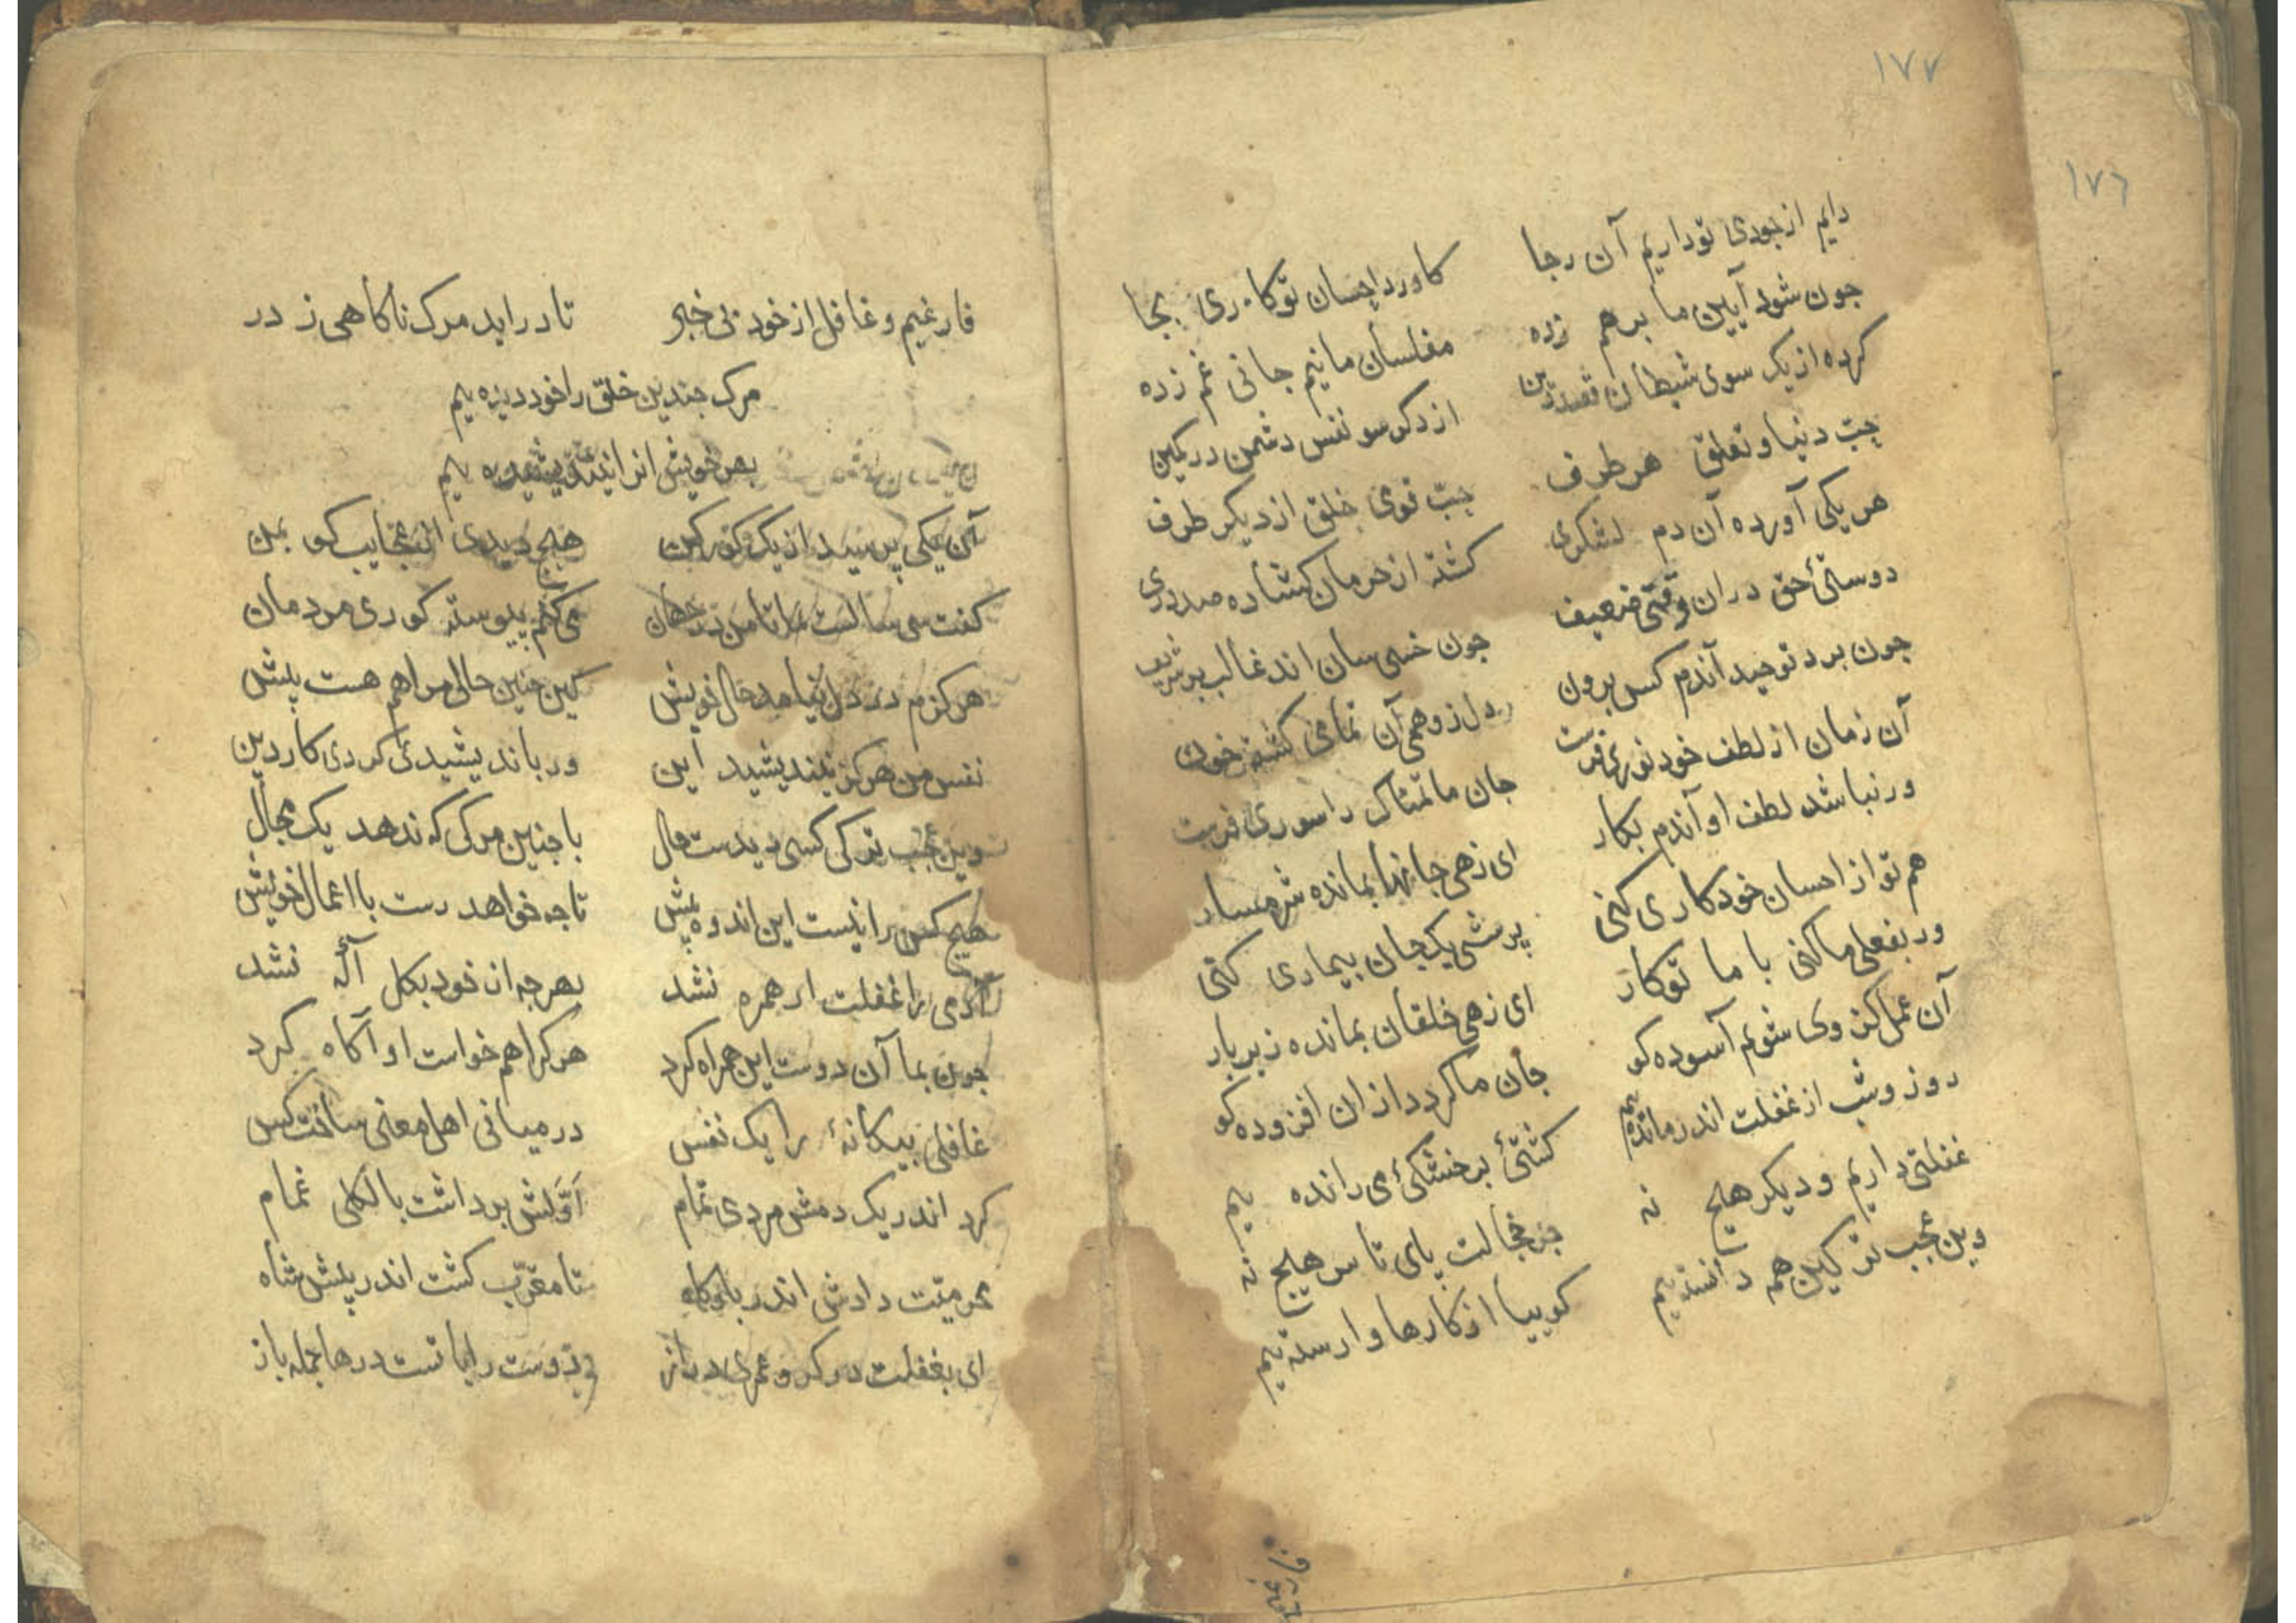 ١٧٧
١٧٦
دایم از جودی تو داریم آن رجا کاورد احسان تو کاری بجا
جون شود آیین ما برهم زده مفلسان ماییم جانی غم زده
کرده از یک سوی شیطان قصد دین از دکر سو نفس دشمن در کمین
حبّ دنیا و تعلق هر طرف حبّ قومی خلق از دیکر طرف
هر یکی آورده آن دم لشکری کشته از حرمان کشاده صدوری
دوستئ حق دران وقتی ضعیف جون خسی سان اند غالب بر شریف
جون برد توحید آندم کس برون دل ز وهمی آن تمامی کشته خون
آن زمان از لطف خود نوری فرست جان ماتمناک را سوری فرست
ور نباشد لطف او آندم بکار ای زهی جانها بمانده شرمسار
هم تو از احسان خود کاری کنی پرسشی یک جان بیماری کنی
ور بفعلی ما کنی با ما تو کار ای زهی خلقان بمانده زیر بار
آن عمل کز وی شویم آسوده کو جان ما کردد ازان افزوده کو
روز و شب از غفلت اندر مانده یم کشتئ بر خشکئ می رانده یم
غفلتی داریم و دیکر هیج نه جز خجالت پای تا سر هیج نه
وین عجب تر کین همه دانسته یم کوییا از کارها وارسته یم
فارغیم و غافل از خود بی خبر تا دراید مرک ناکاهی ز در
مرک جندین خلق را خود دیده یم
بهر خویش انرا نیندیشیده یم
آن یکی پرسید از یک کورکن هیج دیدی از عجایب کو بمن
کفت سی سالست تا من در جهان می کنم پیوسته کوری مردمان
هرکزم در دل نیامد حال خویش کین جنین حالی مرا هم هست پیش
نفس من هرکز نیندیشید این ور باندیشیدی کردی کار دین
وین عجب تر کی کسی دیدست حال با جنین مرکی که ندهد یک مجال
هیج کس را نیست این اندوه پیش تا جه خواهد رست با اعمال خویش
آدمی را غفلت ار همره نشد بهر جه از خود بکل آکه نشد
جون بما آن دوست این همراه کرد هرکرا هم خواست او آکاه کرد
غافلی بیکانهٔ را یک نفس در میانی اهل معنی ساخت کس
کرد اندر یک دمش مردی تمام اوّلش برداشت بالکلی تمام
محرمیّت دادش اندر بارکاه تا مقرّب کشت اندر پیش شاه
ای بغفلت در کرو عمری دراز